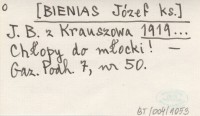 [BIENIAS Józef ks.]
J. B. z Krauszowa 1919...
Chłopy do młocki! —
Gaz. Podh. 7, nr 50.
BJ/004/1053